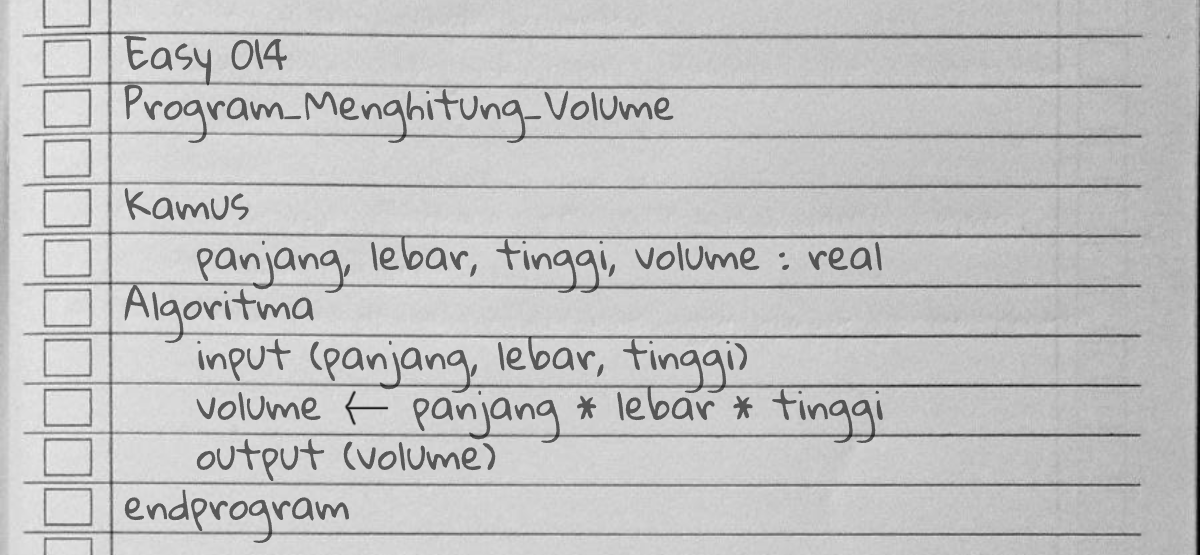 Easy 014
Program_Menghitung_Volume
Kamus
panjang, lebar, tinggi, volume : real
Algoritma
input (panjang, lebar, tinggi)
volume ← panjang * lebar * tinggi
output (volume)
endprogram